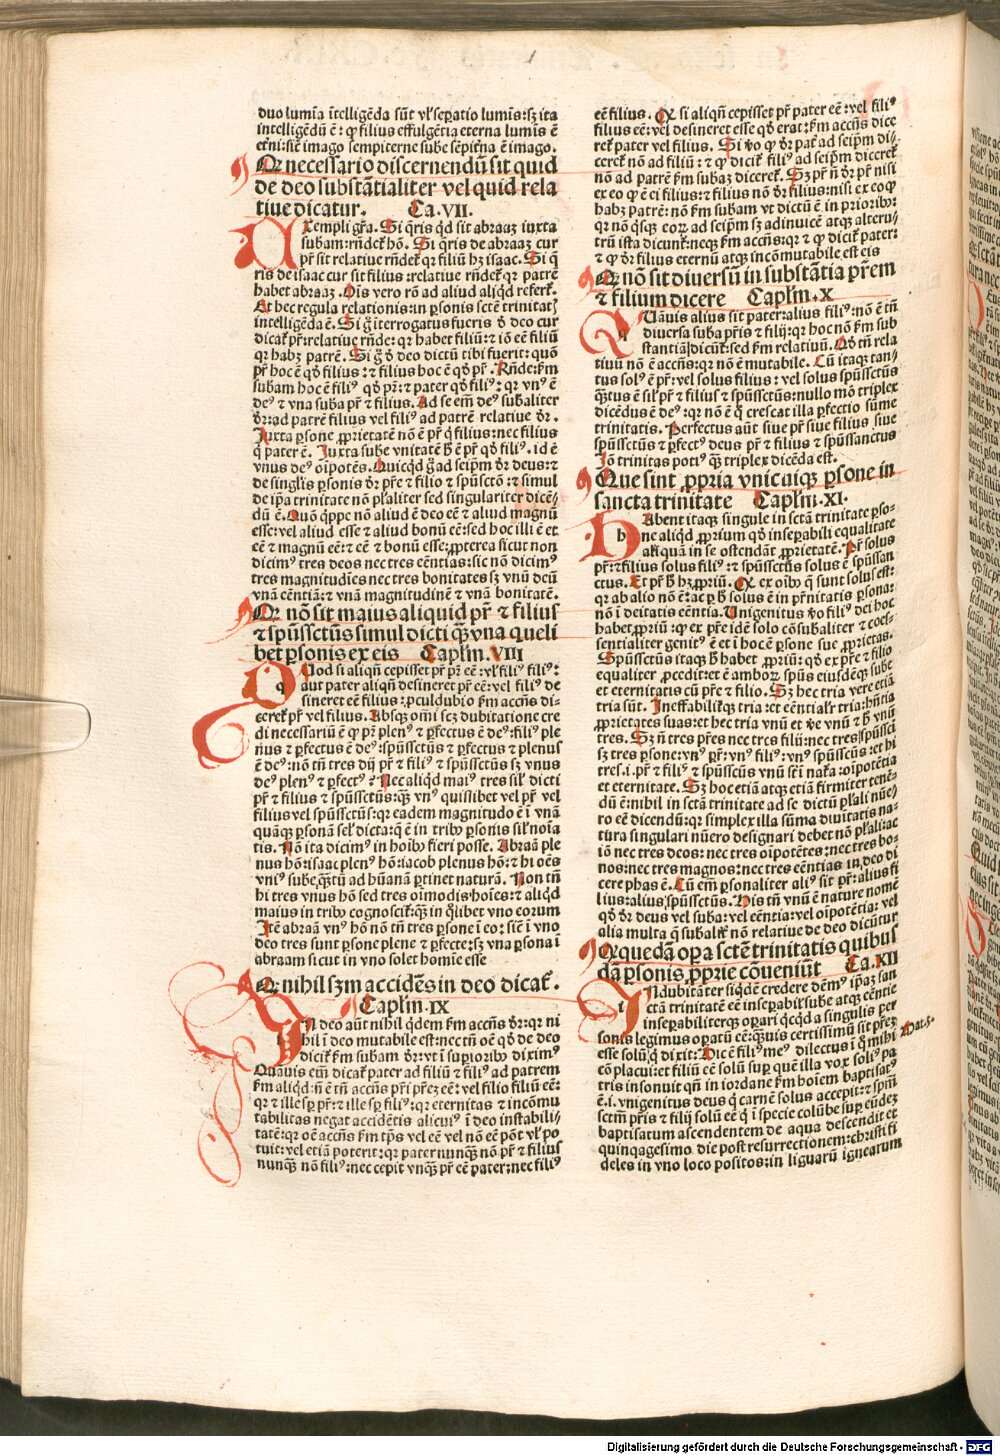 duo lumīa ītelligēda sūt vľ seꝑatio lumīs: sꝫ ita
intelligēdū ē: ꝙ filius effulgētia eterna lumīs ē
et̄ni: siē imago sempiterne sube sēpit̄na ē imago.
Qꝛ necessario discernendū sit quid
de deo substātialiter vel quid rela
tiue dicatur. Ca. VII.
Exempli gr̄a. Si q̄ris qd sit abraaꝫ iuxta
subam: rñdeƭ hō. Si q̄ris de abraaꝫ cur
pr̄ sit relatiue rñdeƭ qꝛ filiū hꝫ isaac. Si q̄
ris de isaac cur sit filius: relatiue rñdeƭ qꝛ patrē
habet abraaꝫ. His vero rō ad aliud aliqd referƭ.
Et hec regula relationis: in ꝑsonis sctē trinitatꝭ
intelligēda ē. Si g̊ īterrogatus fueris ꝺ deo cur
dicaƭ pr̄: relatiue rn̄de: qꝛ habet filiū: ⁊ iō eē filiū
qꝛ habꝫ patrē. Si g̊ ꝺ deo dictū tibi fuerit: quō
pr̄ hoc ē qð filius: ⁊ filius hoc ē qð pr̄. Rn̄de: ẜm
subam hoc ē filiꝰ qð pr̄: ⁊ pater qð filiꝰ: qꝛ vnꝰ ē
deꝰ ⁊ vna suba pr̄ ⁊ filius. Ad se em̄ deꝰ subaliter
dꝛ: ad patrē filius vel filiꝰ ad patrē relatiue dꝛ.
Juxta ꝑsone ꝓprietatē nō ē pr̄ q̄ filius: nec filius
q̄ pater ē. Juxta sube vnitatē h̄ ē pr̄ qð filiꝰ. id ē
vnus deꝰ oīpotēs. Quicqd g̊ ad seipm̄ dꝛ deus: ⁊
de singlis ꝑsonis dꝛ pr̄e ⁊ filio ⁊ spūsctō: ⁊ simul
de ip̄a trinitate nō pľaliter sed singulariter dicē-
dū ē. Quō q̄ppe nō aliud ē deo eē ⁊ aliud magnū
esse: vel aliud esse ⁊ aliud bonū eē: sed hoc illi ē et
eē ⁊ magnū eē: ⁊ eē ⁊ bonū esse: ꝓpterea sicut non
dicimꝰ tres deos nec tres eēntias: sic nō dicimꝰ
tres magnitudies nec tres bonitates sꝫ vnū deū
vnā eēntiā: ⁊ vnā magnitudinē ⁊ vnā bonitatē.
Qꝛ nō sit maius aliquid pr̄ ⁊ filius
⁊ spūssctūs simul dicti q̄ꝫ vna queli
bet ꝑsonis ex eis Caplm. VIII
Quod si aliqn̄ cepisset pr̄ pr̄ eē: vľ filiꝰ filiꝰ:
aut pater aliqn̄ desineret pr̄ eē: vel filiꝰ de
sineret eē filius: ꝓculdubio ẜm accn̄s di-
cereƭ pr̄ vel filius. Absqꝫ om̄i scꝫ dubitatione cre
di necessariū ē ꝙ pr̄ plenꝰ ⁊ ꝑfectus ē deꝰ: filiꝰ ple
nus ⁊ ꝑfectus ē deꝰ: spūssctūs ⁊ ꝑfectus ⁊ plenus
ē deꝰ: nō tn̄ tres dij pr̄ ⁊ filiꝰ ⁊ spūssctūs sꝫ vnus
deꝰ plenꝰ ⁊ ꝑfectꝰ. Nec aliqd maiꝰ tres siľ dicti
pr̄ ⁊ filius ⁊ spūssctūs: q̄ꝫ vnꝰ quislibet vel pr̄ vel
filius vel spūssctūs: qꝛ eadem magnitudo ē ī vnā
quāqꝫ ꝑsonā seľ dicta: q̄ ē in tribꝰ ꝑsonis siľ noīa
tis. Nō ita dicimꝰ in hoībꝰ fieri posse. Abraā ple
nus hō: isaac plenꝰ hō: iacob plenus hō: ⁊ hi oēs
vniꝰ sube, q̄ꝫtū ad hūanā ꝑtinet naturā. Non tn̄
hi tres vnus hō sed tres oīmodis hoīes: ⁊ aliqd
maius in tribꝰ cognosciƭ: q̄ꝫ in q̄libet vno eorum
Itē abraā vnꝰ hō nō tn̄ tres ꝑsone ī eo: siē ī vno
deo tres sunt ꝑsone plene ⁊ ꝑfecte: sꝫ vna ꝑsona ī
abraam sicut in vno solet homīe esse
Qꝛ nihil sꝫm accidēs in deo dicaƭ.
Caplm. IX
In deo aūt nihil q̄dem ẜm accn̄s dꝛ: qꝛ ni
hil ī deo mutabile est: nec tn̄ oē qð de deo
diciƭ ẜm subam dꝛ: vt ī supioribꝰ diximꝰ
Quāuis em̄ dicaƭ pater ad filiū ⁊ filiꝰ ad patrem
ẜm aliqd: nō ē tn̄ accn̄s pr̄i pr̄eꝫ eē: vel filio filiū eē:
qꝛ ⁊ ille sꝑ pr̄: ⁊ ille sꝑ filiꝰ: qꝛ eternitas ⁊ incōmu
tabilitas negat accidētis alicuiꝰ ī deo instabili-
tatē: qꝛ oē accn̄s ẜm tp̄s vel eē vel nō eē pōt vľ po
tuit: vel etiā poterit: qꝛ pater nunqꝫ nō pr̄ ⁊ filius
nunqꝫ nō filiꝰ: nec cepit vnqꝫ pr̄ eē pater: nec filiꝰ
eē filius. Qꝛ si aliqn̄ cepisset pr̄ pater eē: vel filiꝰ
filius eē: vel desineret esse qð erat: ẜm accn̄s dice
reƭ pater vel filius. Si v̊o ꝙ dꝛ pat̄ ad seipm̄ di-
cereƭ nō ad filiū: ⁊ ꝙ diciƭ filiꝰ ad seipm̄ dicereƭ
nō ad patrē ẜm subaꝫ dicereƭ. Sꝫ pr̄ n̄ dꝛ pr̄ nisi
ex eo ꝙ ē ei filius: ⁊ filius nō dꝛ filius: nisi ex eo ꝙ
habꝫ patrē: nō ẜm subam vt dictū ē in prioribꝰ:
qꝛ nō q̄sqꝫ eoꝝ ad seipm̄ sꝫ adinuicē atqꝫ alteru-
trū ista dicunƭ: necqꝫ ẜm accn̄s: qꝛ ⁊ ꝙ diciƭ pater:
⁊ ꝙ dꝛ filius eternū atqꝫ incōmutabile est eis
Qꝛ nō sit diuersū in substātia pr̄em
⁊ filium dicere Caplm. X
Quāuis alius sit pater: alius filiꝰ: nō ē tn̄
diuersa suba pr̄is ⁊ filij: qꝛ hoc nō ẜm sub
stantiā dicūƭ: sed ẜm relatiuū. Qð tn̄ rela
tiuū nō ē accn̄s: qꝛ nō ē mutabile. Cū itaqꝫ tan-
tus solꝰ ē pr̄: vel solus filius: vel solus spūssctūs
q̄ꝫtus ē siľ pr̄ ⁊ filius ⁊ spūssctūs: nullo mō triplex
dicēdus ē deꝰ: qꝛ nō ē q̄ crescat illa ꝑfectio sūme
trinitatis. Perfectus aūt siue pr̄ siue filius siue
spūssctūs ⁊ ꝑfectꝰ deus pr̄ ⁊ filius ⁊ spūssanctus
Jō trinitas potiꝰ q̄ꝫ triplex dicēda est.
Que sint ꝓpria vnicuiqꝫ ꝑsone in
sancta trinitate Caplm. XI.
Habent itaqꝫ singule in sctā trinitate ꝑso-
ne aliqd ꝓprium qð inseꝑabili equalitate
aliquā in se ostendāt ꝓprietatē. Pr̄ solus
pr̄: ⁊ filius solus filiꝰ: ⁊ spūssctūs solus ē spūssan
ctus. Et pr̄ h̄ hꝫ ꝓpriū. Qꝛ ex oībꝰ q̄ sunt solus est:
qꝛ ab alio nō ē: ac ꝑ h̄ solus ē in pr̄nitatis ꝑsona:
nō ī deitatis eēntia. Unigenitus v̊o filiꝰ dei hoc
habet ꝓpriū: ꝙ ex pr̄e idē solo cōsubaliter ⁊ coes-
sentialiter genitꝰ ē et ī hoc ē ꝑsone sue ꝓprietas.
Spūssctūs itaqꝫ h̄ habet ꝓpriū: qð ex pr̄e ⁊ filio
equaliter ꝓcedit: et ē amboꝝ spūs eiusdēqꝫ sube
et eternitatis cū pr̄e ⁊ filio. Sꝫ hec tria vere etiā
tria sūt. Ineffabiliƭqꝫ tria: et eēntialiƭ tria: hn̄tia
ꝓprietates suas: et hec tria vnū et v̊e vnū ⁊ h̄ vnū
tres. Sꝫ n̄ tres pr̄es nec tres filij: nec tres spūssci
sꝫ tres ꝑsone: vnꝰ pr̄: vnꝰ filiꝰ: vnꝰ spūssctūs: et hi
tres .i. pr̄ ⁊ filiꝰ ⁊ spūssctūs vnū st̄ i nat̄a: oīpotētia
et eternitate. Sꝫ hoc etiā atqꝫ etiā firmiter tenē-
dū ē: nihil in sctā trinitate ad se dictū pľali nūe-
ro eē dicendū: qꝛ simplex illa sūma diuitatis na-
tura singulari nūero designari debet nō pľali: ac
iō nec tres deos: nec tres oīpotētes: nec tres bo-
nos: nec tres magnos: nec tres eēntias in deo di
cere phas ē. Cū em̄ ꝑsonaliter aliꝰ sit pr̄: alius fi
lius: alius spūssctūs. His tn̄ vnū ē nature nomē
qð dꝛ deus vel suba: vel eēntia: vel oīpotētia: vel
alia multa q̄ subaliƭ nō relatiue de deo dicūtur
Qꝛ quedā oꝑa sctē trinitatis quibus
dā ꝑsonis ꝓprie cōueniūt Ca. XII
Indubitāter siqdē credere dem̄ꝰ ip̄aꝫ san
ctā trinitatē eē inseꝑabiƭ sube atqꝫ eēntie
inseꝑabiliterqꝫ oꝑari q̄cqd a singulis ꝑer
sonis legimus oꝑatū eē: q̄ꝫuis certissimū sit pr̄eꝫ
esse solū q̄ dixit: Hic ē filiꝰ meꝰ dilectus ī q̄ mihi
cō placui: et filiū eē solū suꝑ quē illa vox soliꝰ pa
tris insonuit qn̄ in iordane ẜm hoīem baptisatꝰ
ē .i. vnigenitus deus q̄ carnē solus accepit: ⁊ spm̄
sctm̄ pr̄is ⁊ filij solū eē q̄ ī specie colūbe suꝑ eūdeꝫ
baptisatum ascendentem de aqua descendit et
quinqagesimo die post resurrectionem: christi fi
deles in vno loco positos: in liguarū ignearum
Mat. 3.
Digitalisierung gefördert durch die Deutsche Forschungsgemeinschaft - DFG